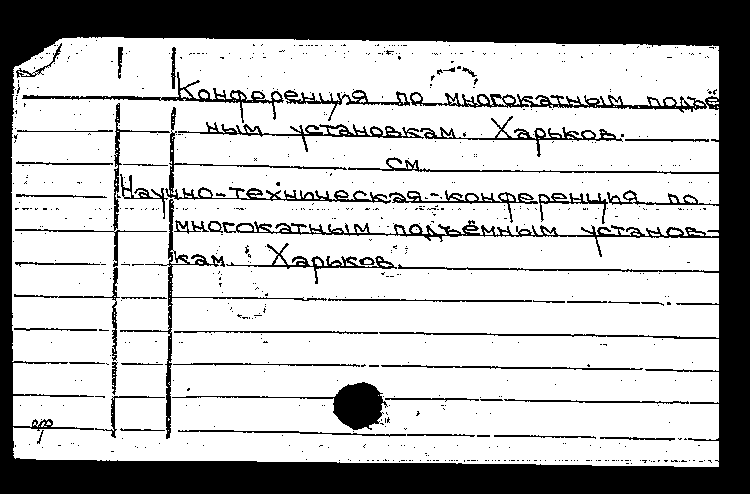 Конференция по многокатным подъё
ным установкам. Харьков.
см
Научно-техническая-конференция по
многокатным подъёмным установ-
кам. Харьков.